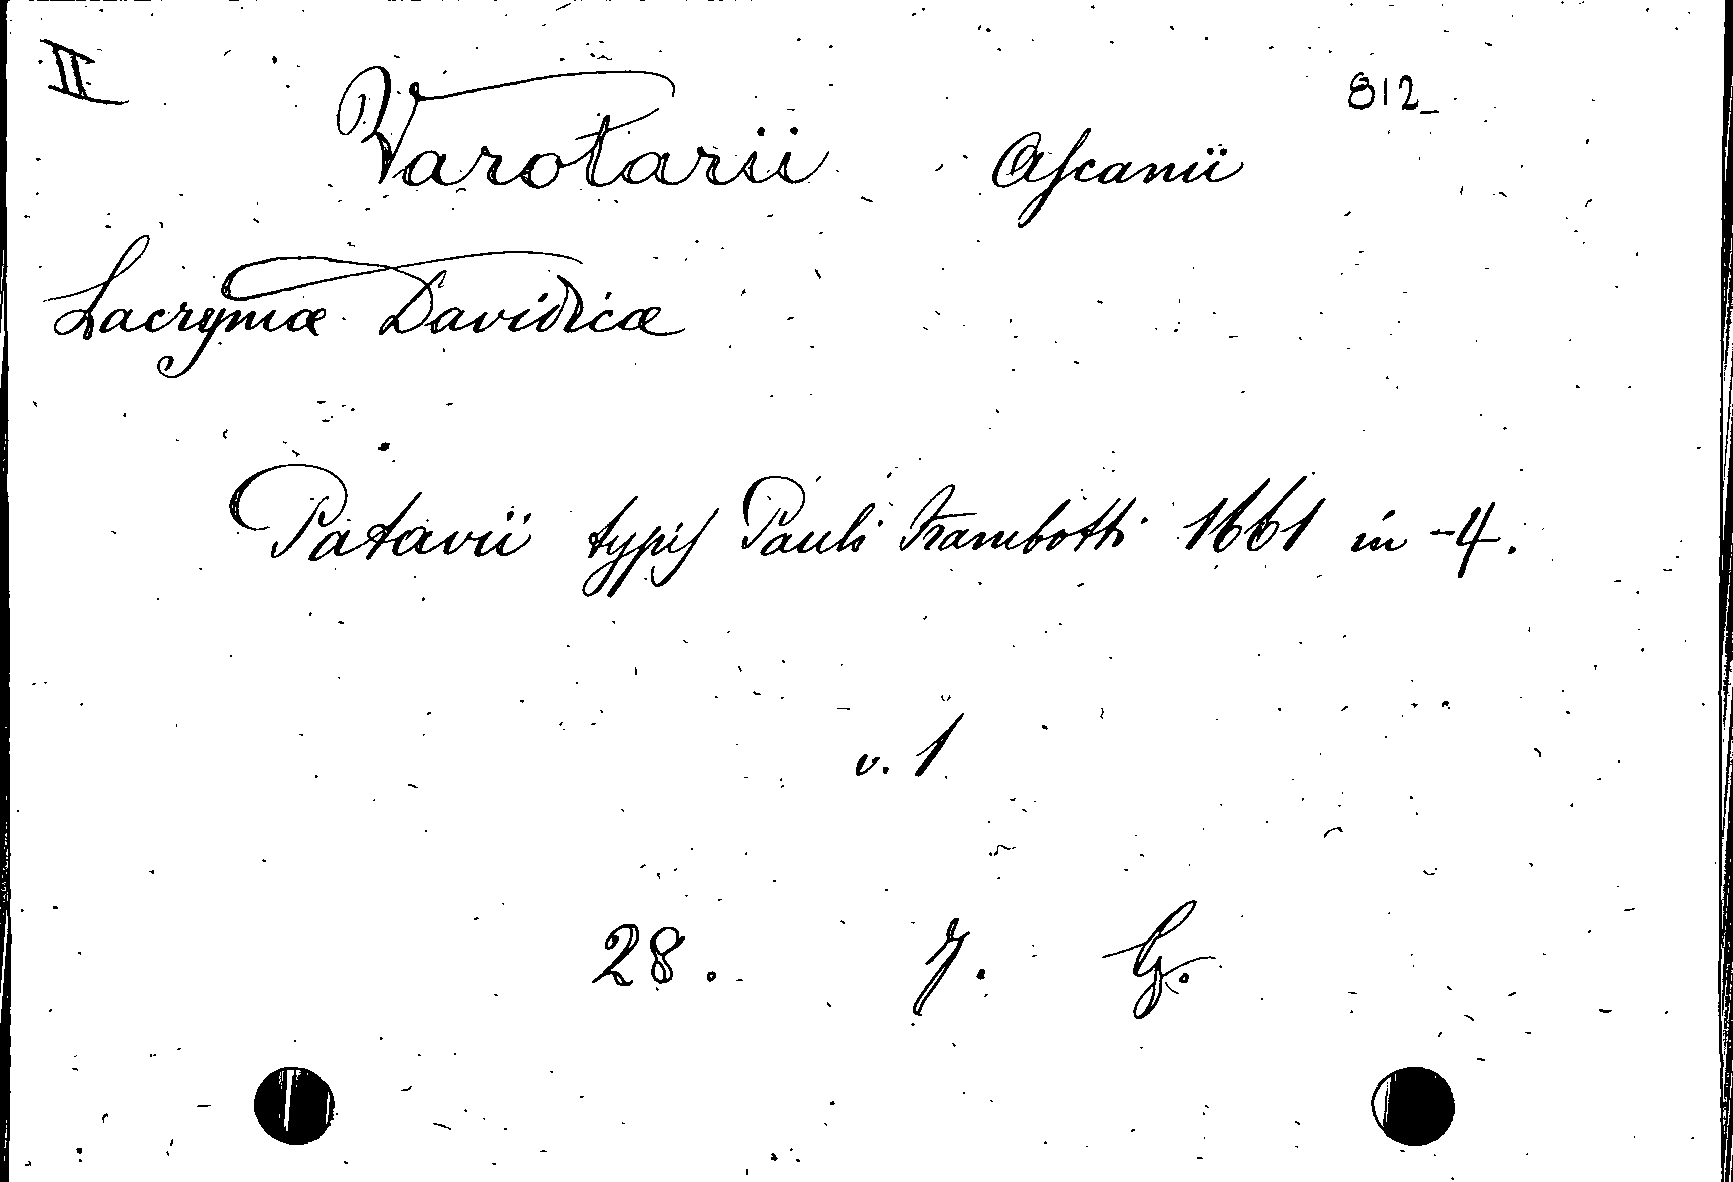 II
812_
Varotarii Ascanii
Lacrymæ Davidicæ
Patavii typis Pauli Frambotti 1661 in -4.
v. 1
28. 7. G.